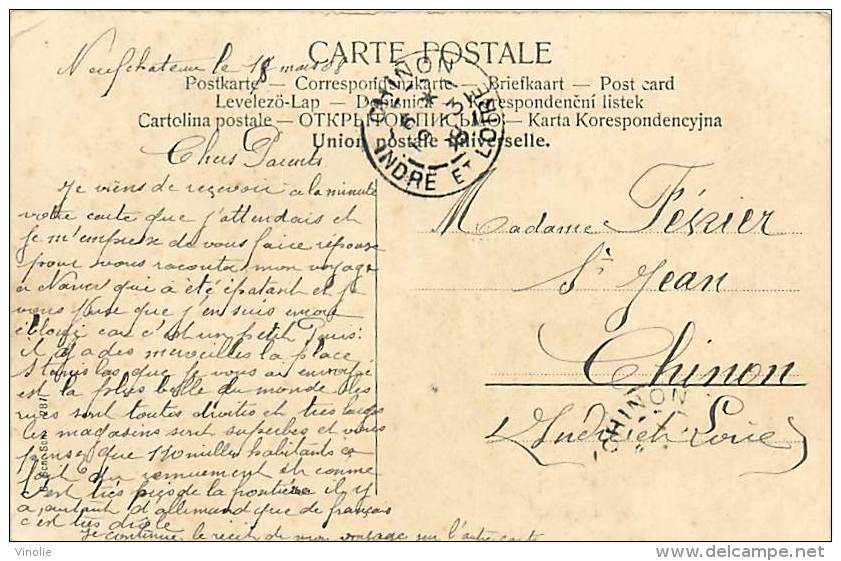 Neufchateau le 18 mars 08
CARTE POSTALE
Postkarte — Correspondenzkarte — Briefkaart — Post card
Levelező-Lap — Dopisnice — Korespondenční listek
Cartolina postale — ОТКРЫТОЕ ПИСЬМО — Karta Korespondencyjna
Union postale universelle.
CHINON
INDRE ET LOIRE
Chers Parents
Je viens de recevoir a la minute
votre carte que j'attendais et
je m'empresse de vous faire réponse
pour vous raconter mon voyage
a Nancy qui a été épatant et je
vous jure que j'en suis encore
ébloui car c'est un petit Paris.
il y a des merveilles la place
Stanislas que je vous ai envoyé
est la plus belle du monde les
rues sont toutes droites et très larges
les magasins sont superbes et vous
pensez que 110 milles habitants ca
fait du remuement et comme
c'est très près de la frontière il y
a autant d'allemand que de français
c'est très drôle
je continue le récit de mon voyage sur l'autre carte
Madame Fékier
St Jean
Chinon
Indre et Loire
CHINON
Vinolie
www.delcampe.net